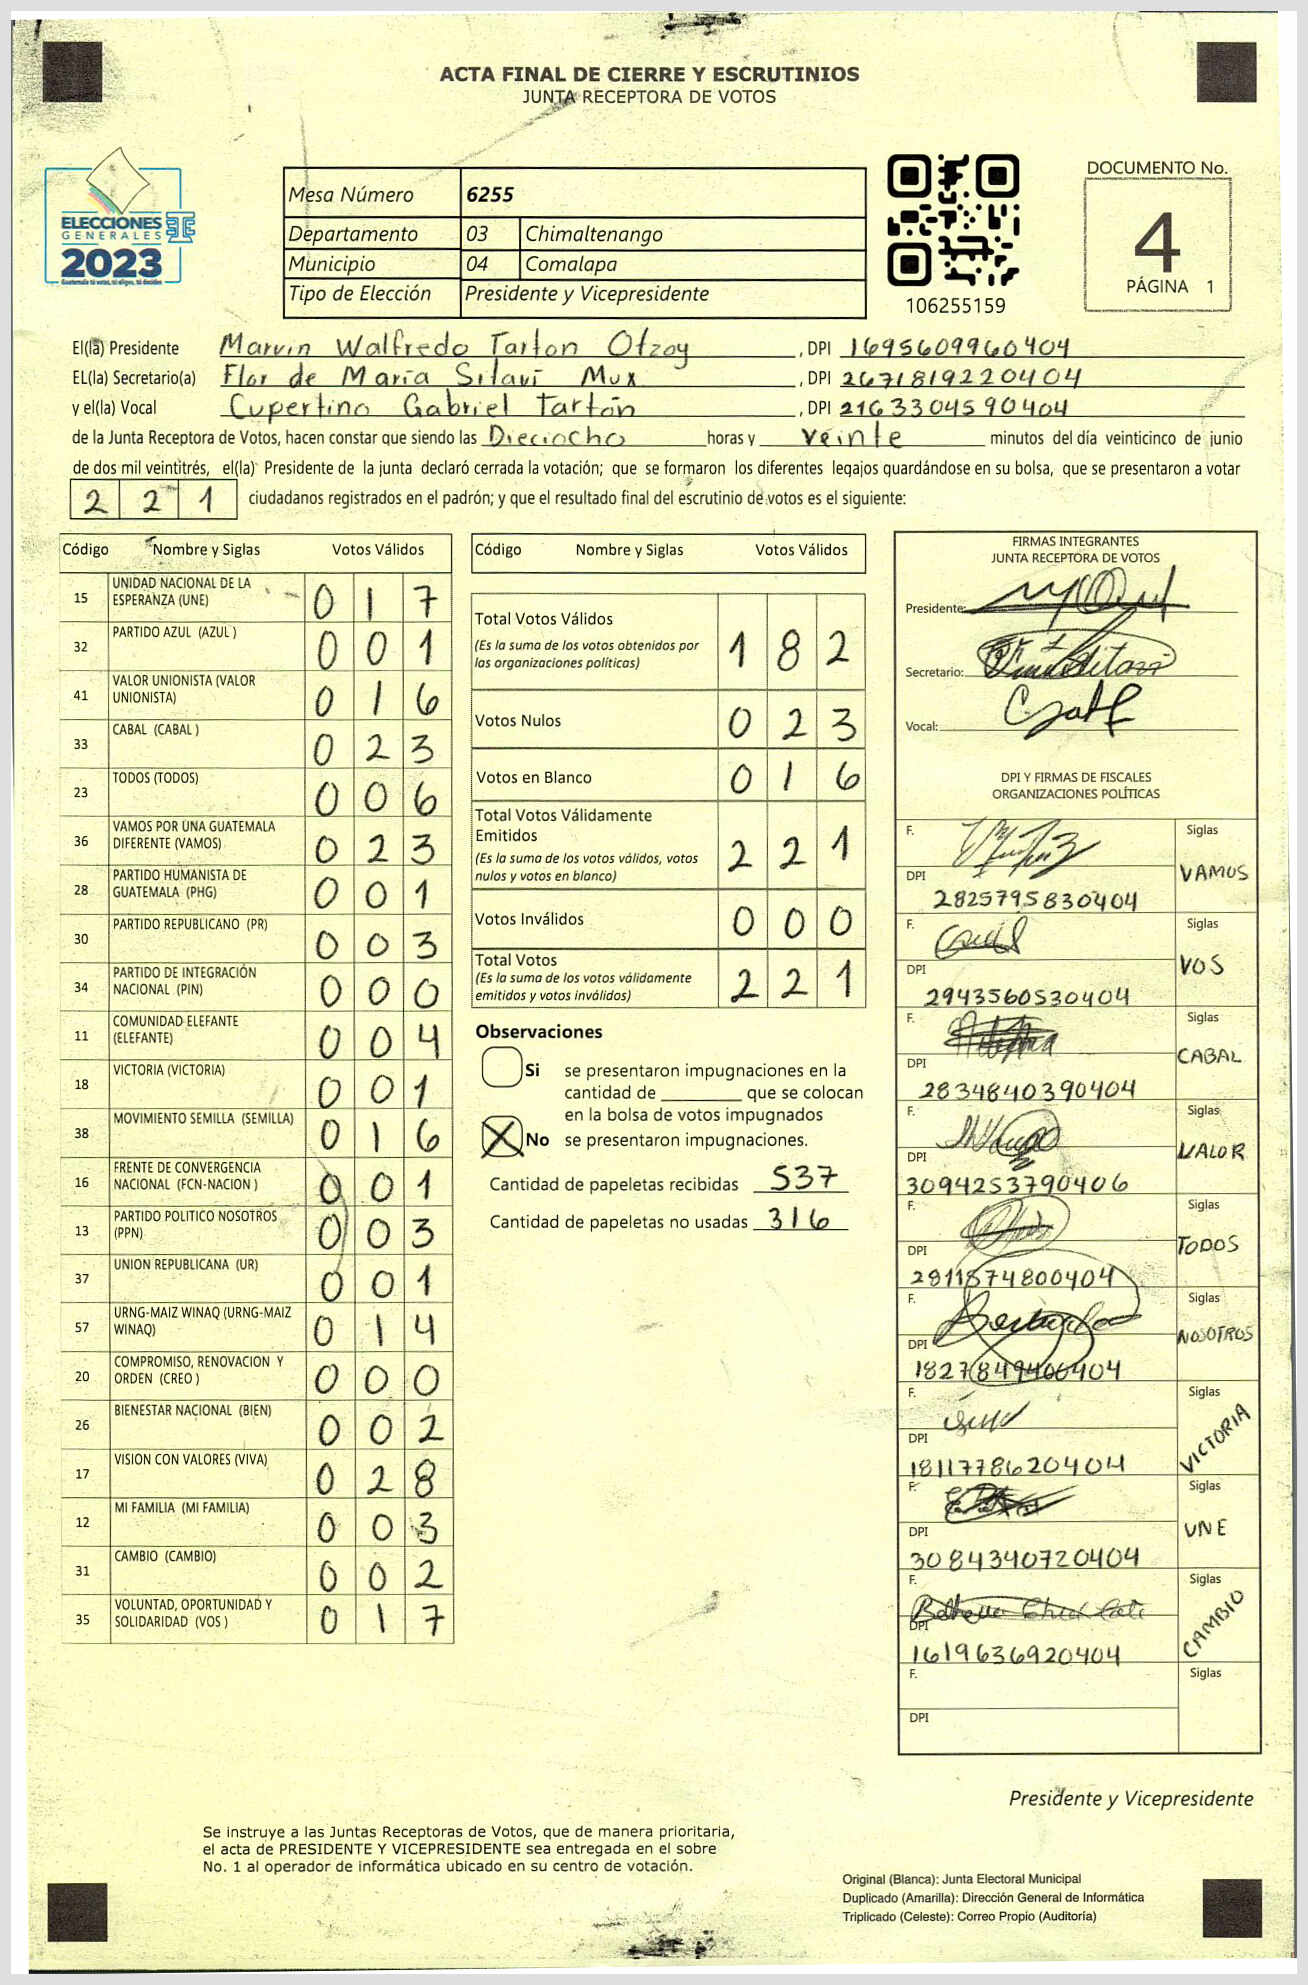 ACTA FINAL DE CIERRE Y ESCRUTINIOS
JUNTA RECEPTORA DE VOTOS
ELECCIONES
GENERALES
2023
TSE
Mesa Número 6255
Departamento 03 Chimaltenango
Municipio 04 Comalapa
Tipo de Elección Presidente y Vicepresidente
106255159
DOCUMENTO No.
4
PÁGINA 1
El(la) Presidente Marvin Walfredo Tarton Otzoy , DPI 1695609960404
EL(la) Secretario(a) Flor de María Silaví Mux , DPI 2671819220404
y el(la) Vocal Cupertino Gabriel Tartón , DPI 2163304590404
de la Junta Receptora de Votos, hacen constar que siendo las Dieciocho horas y veinte minutos del día veinticinco de junio
de dos mil veintitrés, el(la) Presidente de la junta declaró cerrada la votación; que se formaron los diferentes legajos guardándose en su bolsa, que se presentaron a votar
2 2 1 ciudadanos registrados en el padrón; y que el resultado final del escrutinio de votos es el siguiente:
Código Nombre y Siglas Votos Válidos
15 UNIDAD NACIONAL DE LA ESPERANZA (UNE) 0 1 7
32 PARTIDO AZUL (AZUL ) 0 0 1
41 VALOR UNIONISTA (VALOR UNIONISTA) 0 1 6
33 CABAL (CABAL ) 0 2 3
23 TODOS (TODOS) 0 0 6
36 VAMOS POR UNA GUATEMALA DIFERENTE (VAMOS) 0 2 3
28 PARTIDO HUMANISTA DE GUATEMALA (PHG) 0 0 1
30 PARTIDO REPUBLICANO (PR) 0 0 3
34 PARTIDO DE INTEGRACIÓN NACIONAL (PIN) 0 0 0
11 COMUNIDAD ELEFANTE (ELEFANTE) 0 0 4
18 VICTORIA (VICTORIA) 0 0 1
38 MOVIMIENTO SEMILLA (SEMILLA) 0 1 6
16 FRENTE DE CONVERGENCIA NACIONAL (FCN-NACION ) 0 0 1
13 PARTIDO POLITICO NOSOTROS (PPN) 0 0 3
37 UNION REPUBLICANA (UR) 0 0 1
57 URNG-MAIZ WINAQ (URNG-MAIZ WINAQ) 0 1 4
20 COMPROMISO, RENOVACION Y ORDEN (CREO ) 0 0 0
26 BIENESTAR NACIONAL (BIEN) 0 0 2
17 VISION CON VALORES (VIVA) 0 2 8
12 MI FAMILIA (MI FAMILIA) 0 0 3
31 CAMBIO (CAMBIO) 0 0 2
35 VOLUNTAD, OPORTUNIDAD Y SOLIDARIDAD (VOS ) 0 1 7
Código Nombre y Siglas Votos Válidos
Total Votos Válidos
(Es la suma de los votos obtenidos por las organizaciones políticas) 1 8 2
Votos Nulos 0 2 3
Votos en Blanco 0 1 6
Total Votos Válidamente Emitidos
(Es la suma de los votos válidos, votos nulos y votos en blanco) 2 2 1
Votos Inválidos 0 0 0
Total Votos
(Es la suma de los votos válidamente emitidos y votos inválidos) 2 2 1
Observaciones
Si se presentaron impugnaciones en la
cantidad de ________ que se colocan
en la bolsa de votos impugnados
X No se presentaron impugnaciones.
Cantidad de papeletas recibidas 537
Cantidad de papeletas no usadas 316
FIRMAS INTEGRANTES
JUNTA RECEPTORA DE VOTOS
Presidente:
Secretario:
Vocal:
DPI Y FIRMAS DE FISCALES
ORGANIZACIONES POLÍTICAS
F. Siglas
DPI 2825795830404 VAMOS
F. Siglas
DPI 2943560530404 VOS
F. Siglas
DPI 2834840390404 CABAL
F. Siglas
DPI 3094253790406 VALOR
F. Siglas
DPI 2911874800404 TODOS
F. Siglas
DPI 1827849400404 NOSOTROS
F. Siglas
DPI 1811778620404 VICTORIA
F. Siglas
DPI 3084340720404 UNE
F. Siglas
DPI 1619636920404 CAMBIO
F. Siglas
DPI
Presidente y Vicepresidente
Se instruye a las Juntas Receptoras de Votos, que de manera prioritaria,
el acta de PRESIDENTE Y VICEPRESIDENTE sea entregada en el sobre
No. 1 al operador de informática ubicado en su centro de votación.
Original (Blanca): Junta Electoral Municipal
Duplicado (Amarilla): Dirección General de Informática
Triplicado (Celeste): Correo Propio (Auditoría)